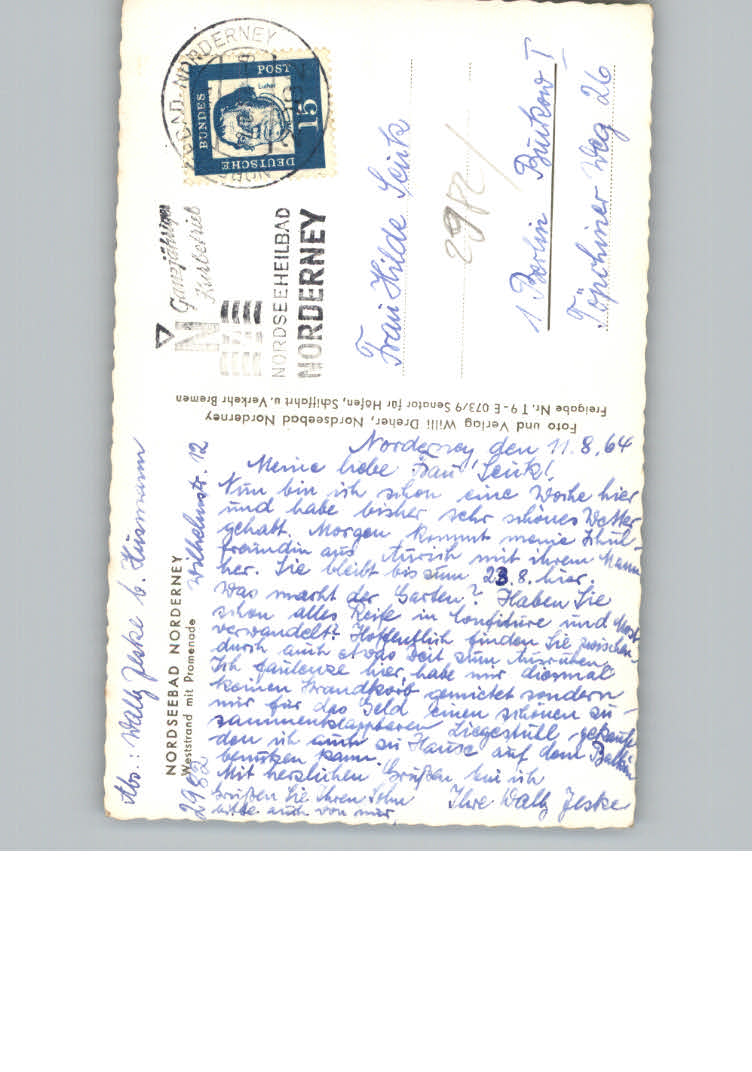 NORDSEEBAD NORDERNEY
DEUTSCHE
BUNDES
POST
15
Luther
Ganzjähriger
Kurbetrieb
NORDSEEHEILBAD
NORDERNEY
Frau Hilde
2982/
1 Berlin Buckow I
Töpchiner Weg 26
Foto und Verlag Willi Dreher, Nordseebad Norderney
Freigabe Nr. T 9 - E 073/9 Senator für Häfen, Schiffahrt u. Verkehr Bremen
Abs.: Wally Jeske b. Husmann
2982 Wilhelmstr. 12
NORDSEEBAD NORDERNEY
Weststrand mit Promenade
Norderney den 11.8.64
Meine liebe Frau
Nun bin ich schon eine Woche hier
und habe bisher sehr schönes Wetter
gehabt. Morgen kommt meine Schul-
freundin aus Aurich mit ihrem Mann
her. Sie bleibt bis zum 23.8. hier.
Was macht der Garten? Haben Sie
schon alles Reife in Confitüre und Most
verwandelt? Hoffentlich finden Sie zwischen-
durch auch etwas Zeit zum Ausruhen.
Ich faulenze hier, habe mir diesmal
keinen Strandkorb gemietet sondern
mir für das Geld einen schönen zu-
sammenklappbaren Liegestuhl gekauft
den ich auch zu Hause auf dem Balkon
benutzen kann.
Mit herzlichen Grüßen bin ich
Ihre Wally Jeske
Grüßen Sie Ihren Sohn
bitte auch von mir.